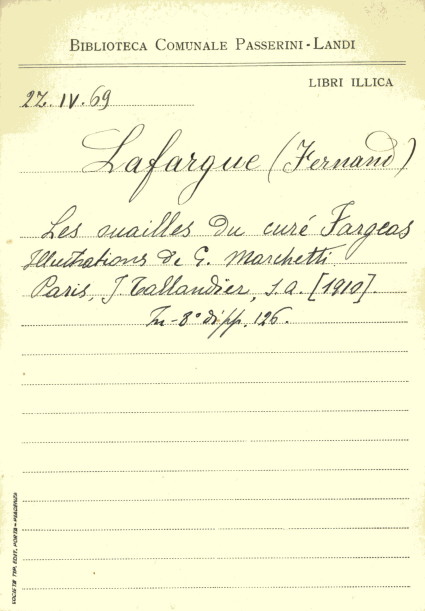 BIBLIOTECA COMUNALE PASSERINI-LANDI
LIBRI ILLICA
27.IV.69
Lafargue (Fernand)
Les ouailles du curé Fargeas
Illustrations de G. Marchetti
Paris, J. Tallandier, s.a. [1910].
In-8° di pp. 126.
SOCIETÀ TIP. EDIT. PORTA - PIACENZA